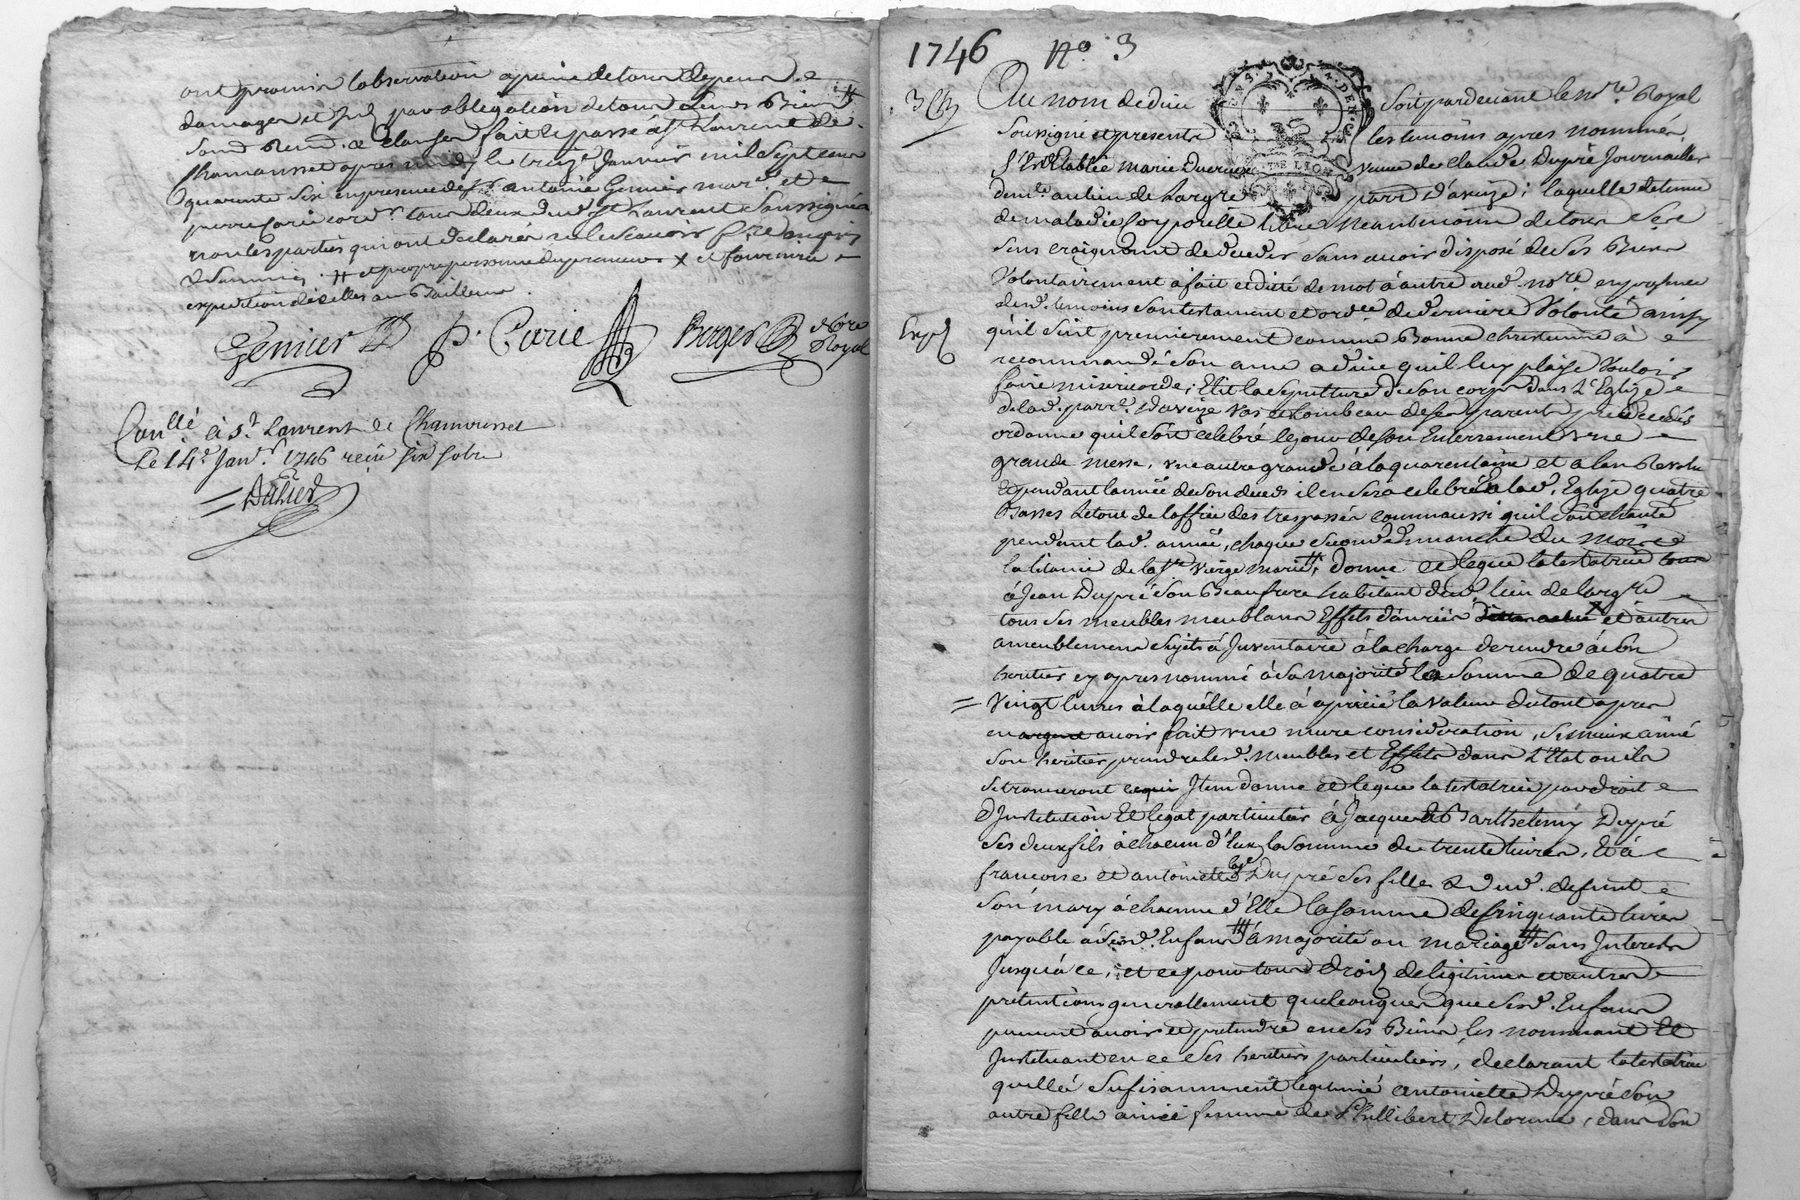 ont promis l'observation a peine de tous depens
damages et par obligation de tous leurs Biens #
fait et passé à St Laurent de
Chamousset apres midy le treize Janvier mil sept cent
quarante six en presence de Sr antoine Genier mar.d et
pierre Carie cord.r tous deux dud. St Laurent Soussignés
non les parties qui ont declarés ne le scavoir
# et X et fournira
expedition d'icelles au Bailleur.
Genier P. Carie Berger Nore
Royal
Con.llé à St Laurent de Chamousset
Le 14.e Janv.r 1746 reçu six sols
1746 N.o 3
Au nom de dieu Soit pardevant le no.re Royal
Soussigné et presents les temoins apres nommés
fut Establie marie veuve de Claude Dupré Journallier
dem.t au lieu de Largre parr. d'aveize ; laquelle detenue
de maladie Corporelle libre Neantmoins de tous Ses
Sens craignant de deceder Sans avoir disposé de Ses Biens
Volontairement a fait et dicté de mot à autre aud. no.re en presence
desd. temoins Son testament et ord.ce de derniere Volonté ainsy
Exp.
qu'il Suit premierement comme Bonne chretienne à
recommandé Son ame a dieu qu'il luy plaise Vouloir
faire misericorde ; Elit la Sepulture de Son corps dans L'Eglise
de lad. parr.e d'aveize tombeau de Ses parents predecedés
ordonne qu'il Soit celebré le jour de Son Enterrement une
grande messe, une autre grande à la quarentaine et a l'an Revolu
Et pendant l'année de Son deces il en Sera celebré a lad. Eglise quatre
Basses Letout de l'office des trespassés comme aussi qu'il Soit chanté
pendant lad. année, chaque Second dimanche du mois
la litanie de la Ste Vierge marie #; donne et legue la testatrice
à Jean Dupré Son Beaufrere habitant dud. lieu de Largre
tous Ses meubles meublans Effets danrées et autres
ameublemens Sujets à Inventaire à la charge de rendre à Son
heritier cy apres nommé à Sa majorité la Somme de quatre
= Vingt livres à laquelle elle à aprecié la Valeur du tout apres
en avoir fait une mure consideration, Si mieux aime
Son heritier prendre lesd. meubles et Effets dans L'Etat ou ils
Se trouveront Item donne et legue la testatrice par droit
d'Institution Et legat particulier à Jacques Et Barthelemy Dupré
Ses deux fils à chacun d'Eux la Somme de trente livres, Et à
francoise et antoinette Dupré Ses filles dud. defunt
Son mary à chacune d'Elle la Somme de Cinquante livres
payable à Sesd. Enfans # à majorité ou mariage # Sans Interets
Jusqu'à ce, et ce pour tous droits de legitimes et autres
pretentions generallement quelconques que Sesd. Enfans
peuvent avoir et pretendre en Ses Biens les nommant Et
Instituant en ce Ses heritiers particuliers, declarant la testatrice
qu'elle à Sufisamment legitimé antoinette Dupré Son
autre fille ainée femme de Phillibert Delorme, dans Son